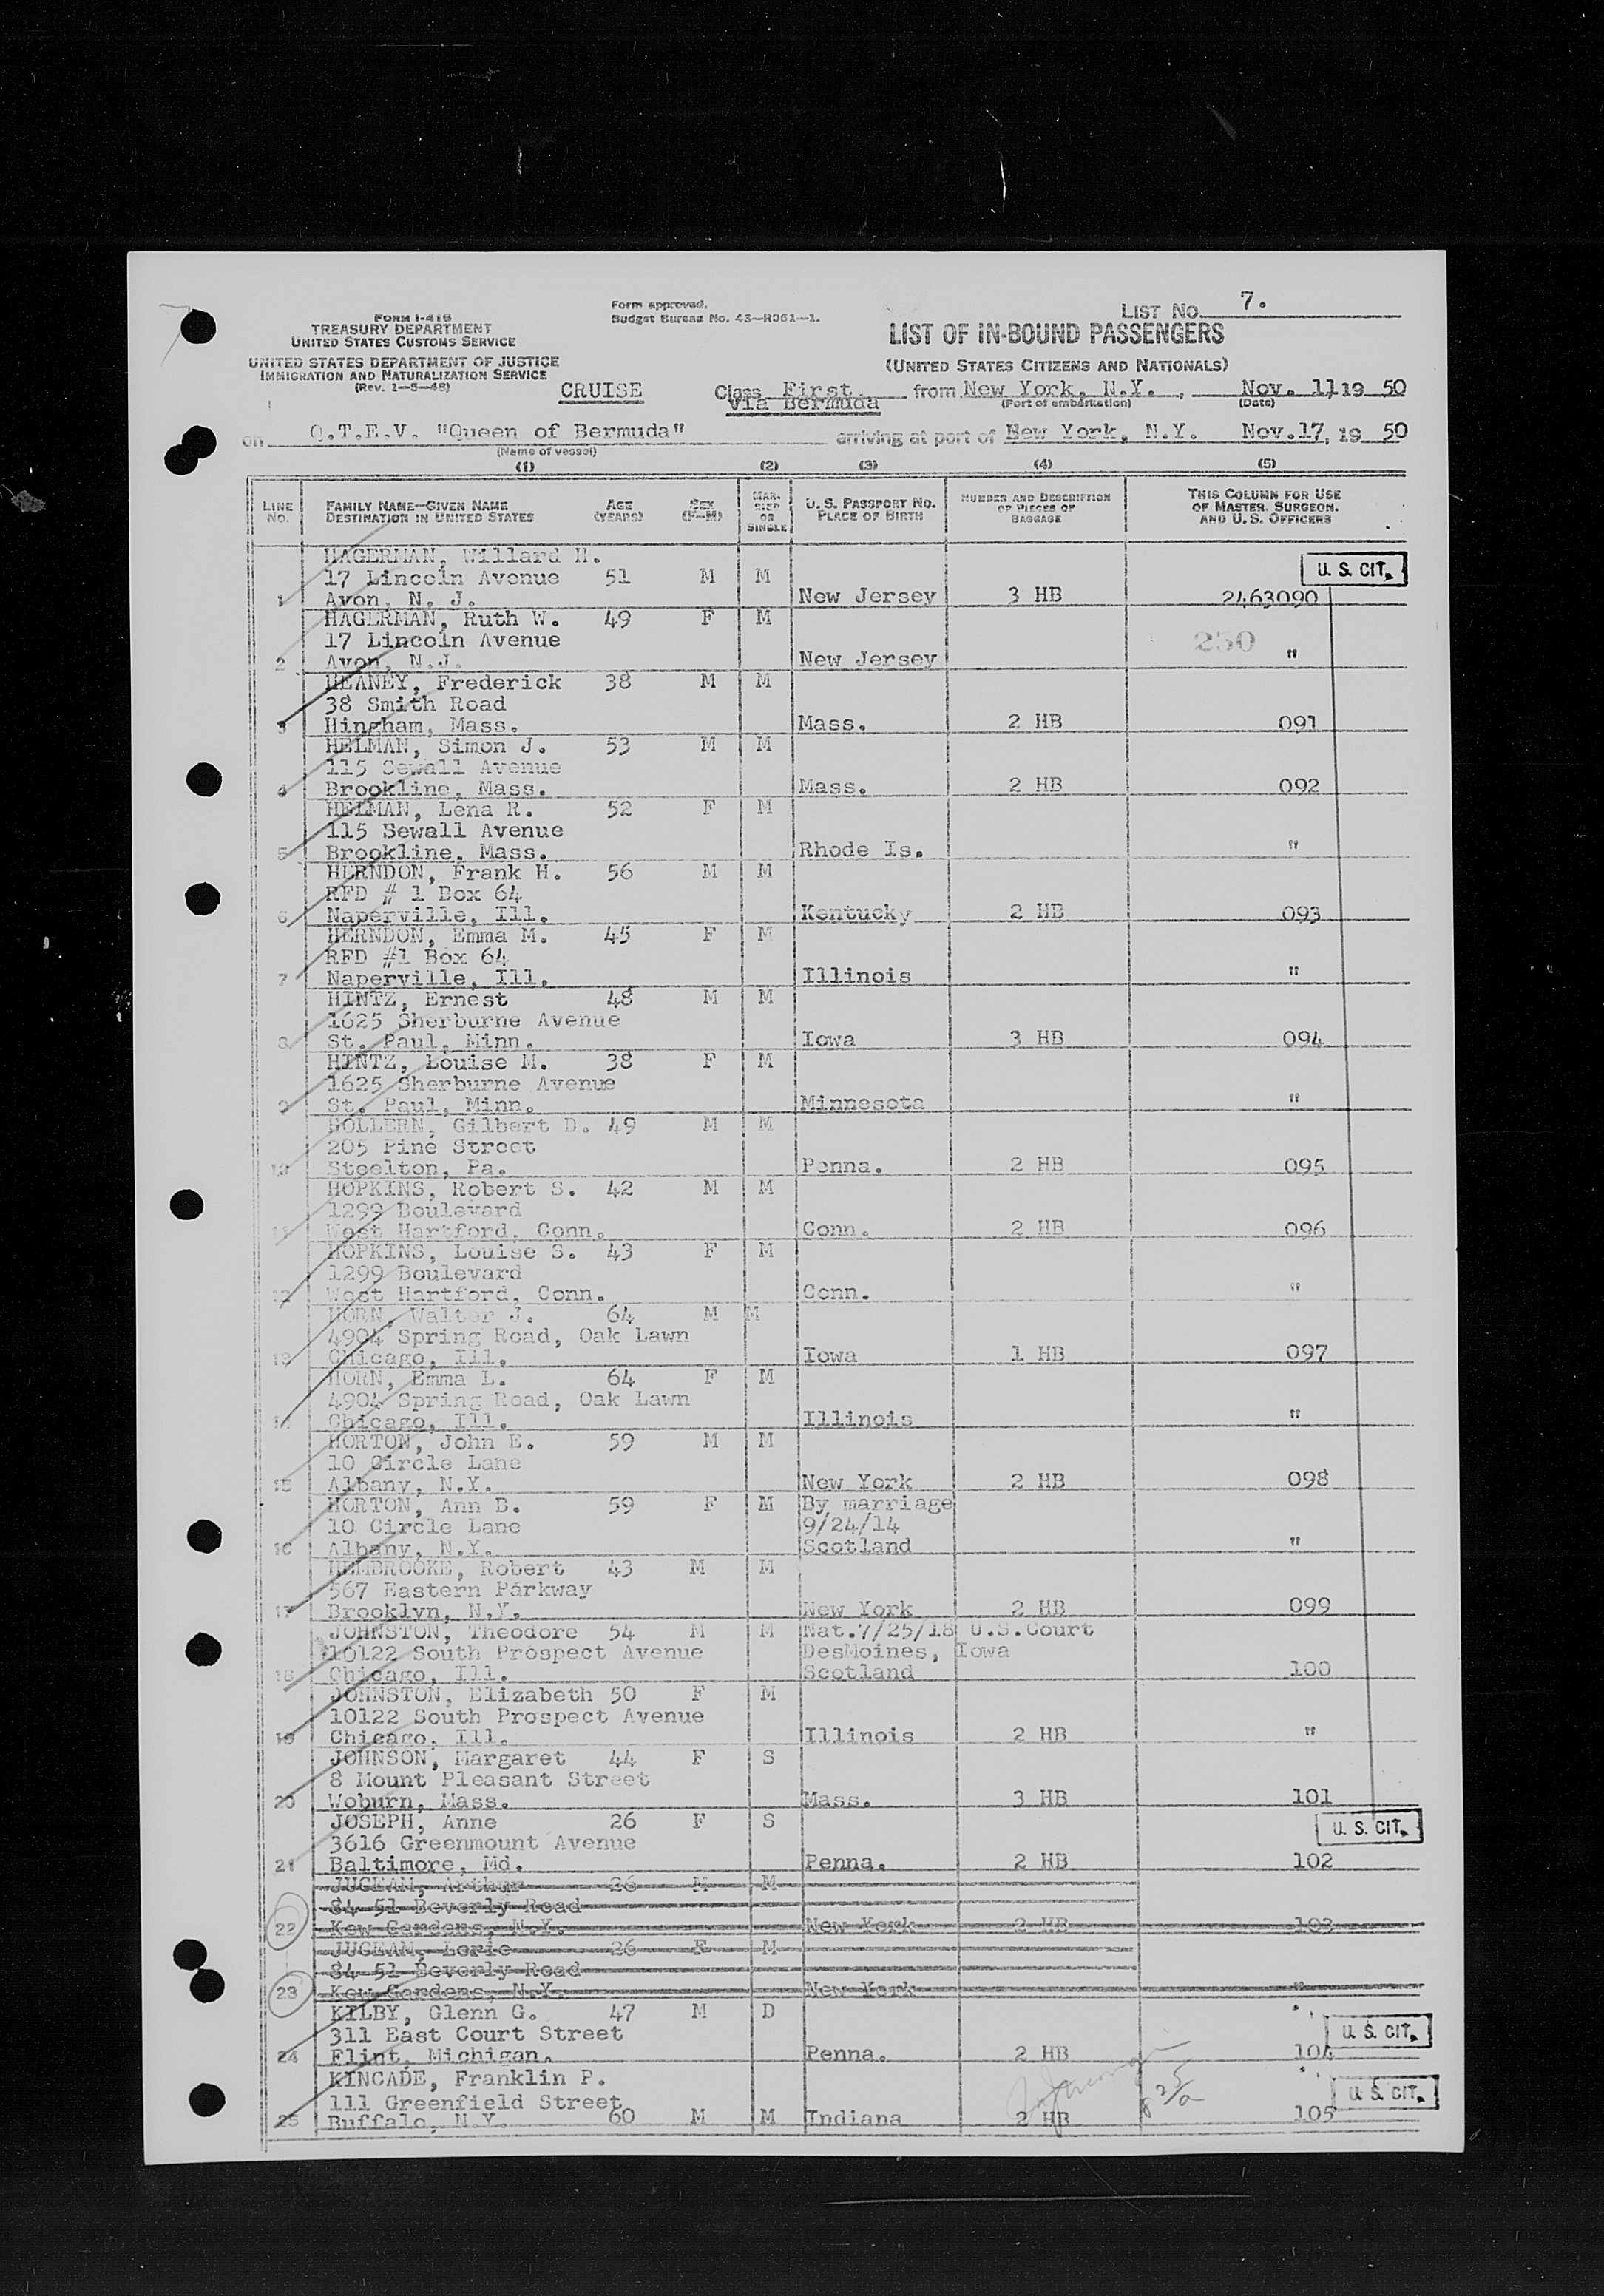 LIST No. 7.
FORM I-416
TREASURY DEPARTMENT
UNITED STATES CUSTOMS SERVICE
UNITED STATES DEPARTMENT OF JUSTICE
IMMIGRATION AND NATURALIZATION SERVICE
(Rev. 1-5-48)
Form approved.
Budget Bureau No. 43-R061-1.
LIST OF IN-BOUND PASSENGERS
(UNITED STATES CITIZENS AND NATIONALS)
CRUISE Class First from New York, N.Y., Nov. 11 19 50
Via Bermuda (Port of embarkation) (Date)
on Q.T.E.V. "Queen of Bermuda" arriving at port of New York, N.Y. Nov. 17, 19 50
(Name of vessel)
(1) (2) (3) (4) (5)
LINE No. FAMILY NAME—GIVEN NAME DESTINATION IN UNITED STATES AGE (YEARS) SEX (F-M) MARRIED OR SINGLE U. S. PASSPORT NO. PLACE OF BIRTH NUMBER AND DESCRIPTION OF PIECES OF BAGGAGE THIS COLUMN FOR USE OF MASTER, SURGEON, AND U. S. OFFICERS
HAGERMAN, Willard H.
17 Lincoln Avenue 51 M M U. S. CIT.
1 Avon, N. J. New Jersey 3 HB 2463090
HAGERMAN, Ruth W. 49 F M
17 Lincoln Avenue 250
2 Avon, N.J. New Jersey "
HEANEY, Frederick 38 M M
38 Smith Road
3 Hingham, Mass. Mass. 2 HB 091
HELMAN, Simon J. 53 M M
115 Sewall Avenue
4 Brookline, Mass. Mass. 2 HB 092
HELMAN, Lena R. 52 F M
115 Sewall Avenue
5 Brookline, Mass. Rhode Is. "
HERNDON, Frank H. 56 M M
RFD # 1 Box 64
6 Naperville, Ill. Kentucky 2 HB 093
HERNDON, Emma M. 45 F M
RFD #1 Box 64
7 Naperville, Ill. Illinois "
HINTZ, Ernest 48 M M
1625 Sherburne Avenue
8 St. Paul, Minn. Iowa 3 HB 094
HINTZ, Louise M. 38 F M
1625 Sherburne Avenue
9 St. Paul, Minn. Minnesota "
HOLLERN, Gilbert D. 49 M M
205 Pine Street
10 Steelton, Pa. Penna. 2 HB 095
HOPKINS, Robert S. 42 M M
1299 Boulevard
11 West Hartford, Conn. Conn. 2 HB 096
HOPKINS, Louise S. 43 F M
1299 Boulevard
12 West Hartford, Conn. Conn. "
HORN, Walter J. 64 M M
4904 Spring Road, Oak Lawn
13 Chicago, Ill. Iowa 1 HB 097
HORN, Emma L. 64 F M
4904 Spring Road, Oak Lawn
14 Chicago, Ill. Illinois "
HORTON, John E. 59 M M
10 Circle Lane
15 Albany, N.Y. New York 2 HB 098
HORTON, Ann B. 59 F M By marriage
10 Circle Lane 9/24/14
16 Albany, N.Y. Scotland "
HEMBROOKE, Robert 43 M M
567 Eastern Parkway
17 Brooklyn, N.Y. New York 2 HB 099
JOHNSTON, Theodore 54 M M Nat.7/25/18 U.S.Court
10122 South Prospect Avenue DesMoines, Iowa
18 Chicago, Ill. Scotland 100
JOHNSTON, Elizabeth 50 F M
10122 South Prospect Avenue
19 Chicago, Ill. Illinois 2 HB "
JOHNSON, Margaret 44 F S
8 Mount Pleasant Street
20 Woburn, Mass. Mass. 3 HB 101
JOSEPH, Anne 26 F S U. S. CIT.
3616 Greenmount Avenue
21 Baltimore, Md. Penna. 2 HB 102
JUGEAM, Arthur 26 M M
84 51 Beverly Road
22 Kew Gardens, N.Y. New York 2 HB 103
JUGEAM, 26 F M
84 51 Beverly Road
23 Kew Gardens, N.Y. New York "
KILBY, Glenn G. 47 M D
311 East Court Street U. S. CIT.
24 Flint, Michigan. Penna. 2 HB 104
KINCADE, Franklin P.
111 Greenfield Street U. S. CIT.
25 Buffalo, N.Y. 60 M M Indiana 2 HB 105